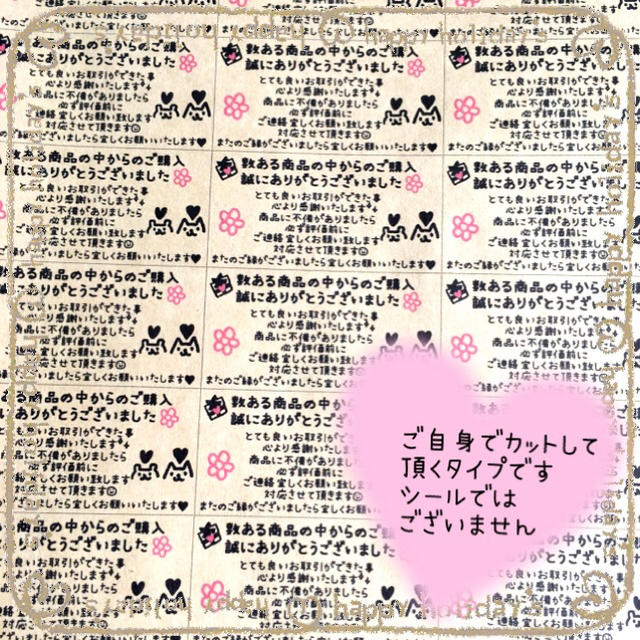 数ある商品の中からのご購入
誠にありがとうございました
とても良いお取引ができた事
心より感謝いたします
商品に不備がありましたら
必ず評価前に
ご連絡 宜しくお願い致します
対応させて頂きます☺
またのご縁がございましたら宜しくお願いいたします♥
ご自身でカットして
頂くタイプです
シールでは
ございません
happy holidays